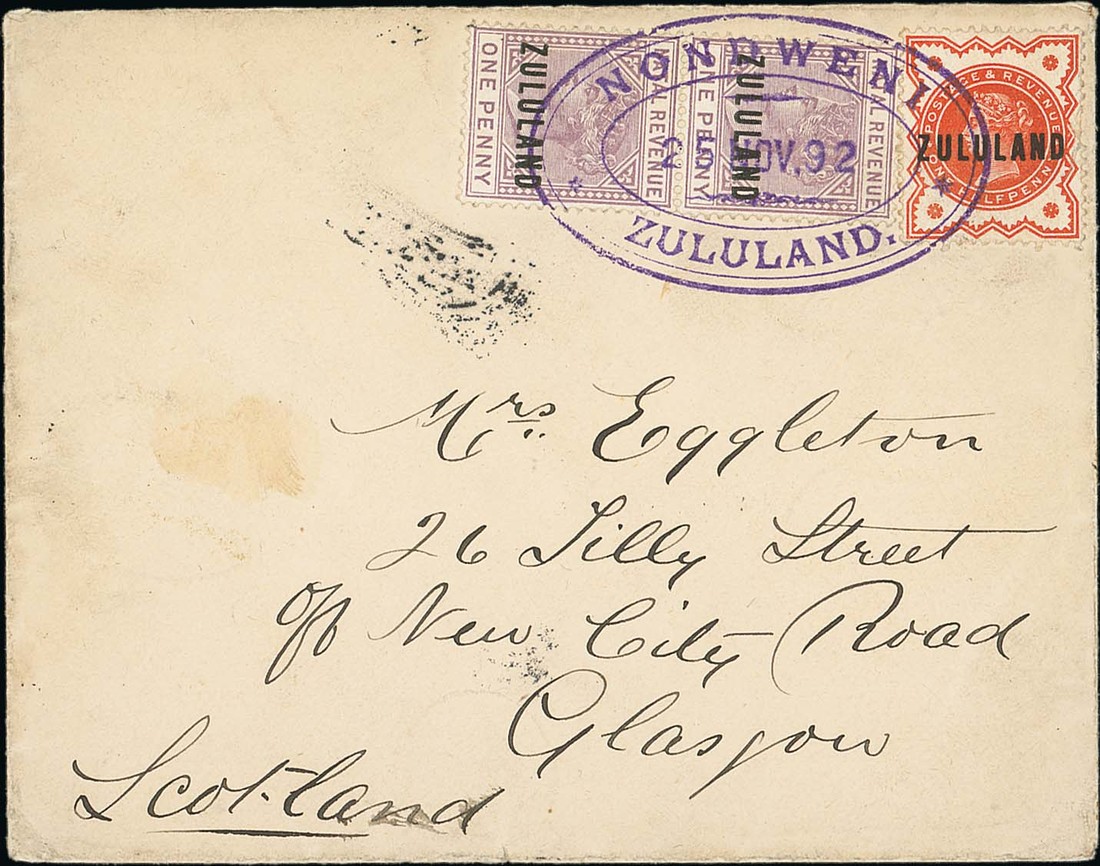 ZULULAND
ONE PENNY
REVENUE
ZULULAND
PENNY
REVENUE
POSTAGE & REVENUE
ZULULAND
ONE HALFPENNY
NONDWENI
25 NOV. 92
ZULULAND.
Mrs. Eggleton
26 Lilly Street
off New City Road
Glasgow
Scotland